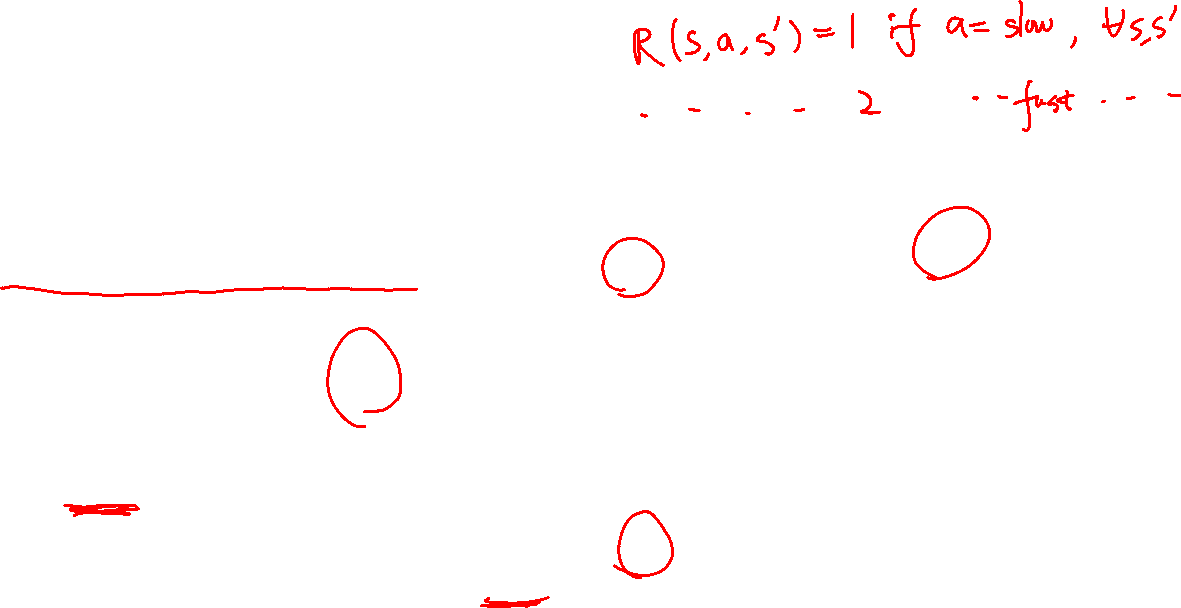 R(s,a,s')=1 if a= slow, ∀s,s'
. - . - 2 -- fast . - -